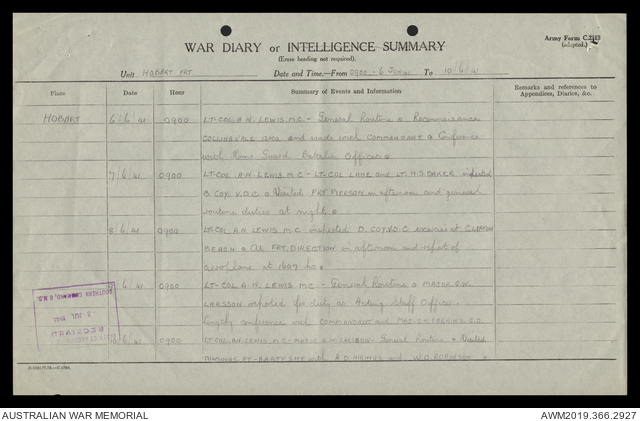 Army Form C.2118
(adapted.)
WAR DIARY or INTELLIGENCE SUMMARY
(Erase heading not required).
Unit HOBART FRT. Date and Time.—From 0900 - 6 JUN 41 To 10/6/41
Place Date Hour Summary of Events and Information Remarks and references to Appendices, Diaries, &c.
HOBART 6/6/41 0900 LT-COL A.N. LEWIS. M.C. - General Routine & Reconnaissance
COLLINSVALE area and roads with COMMANDANT & Conference
with Home Guard Battalion Officers.
7/6/41 0900 LT-COL A.N. LEWIS. M.C - LT-COL LANE and LT. H.S. BAKER inspected
B. COY. V.D.C & Visited FRT. PIERSON in afternoon and general
routine duties at night.
8/6/41 0900 LT-COL A.N. LEWIS M.C inspected D. COY. V.D.C exercises at CLIFTON
BEACH & at FRT. DIRECTION in afternoon and report of
aeroplane at 1607 hrs.
/6/41 0900 LT-COL A.N. LEWIS M.C - General Routine & MAJOR S.W.
LARSSON reported for duty as Acting Staff Officer.
Lengthy conference with COMMANDANT and MAJ. C.H. PERKINS
10/6/41 0900 LT-COL A.N. LEWIS. M.C - General Routine & Visited
with A.D. and W.O. ROBINSON
SOUTHERN COMMAND, 6 M.D.
JUL 1941
RECEIVED
AUSTRALIAN WAR MEMORIAL
AWM2019.366.2927